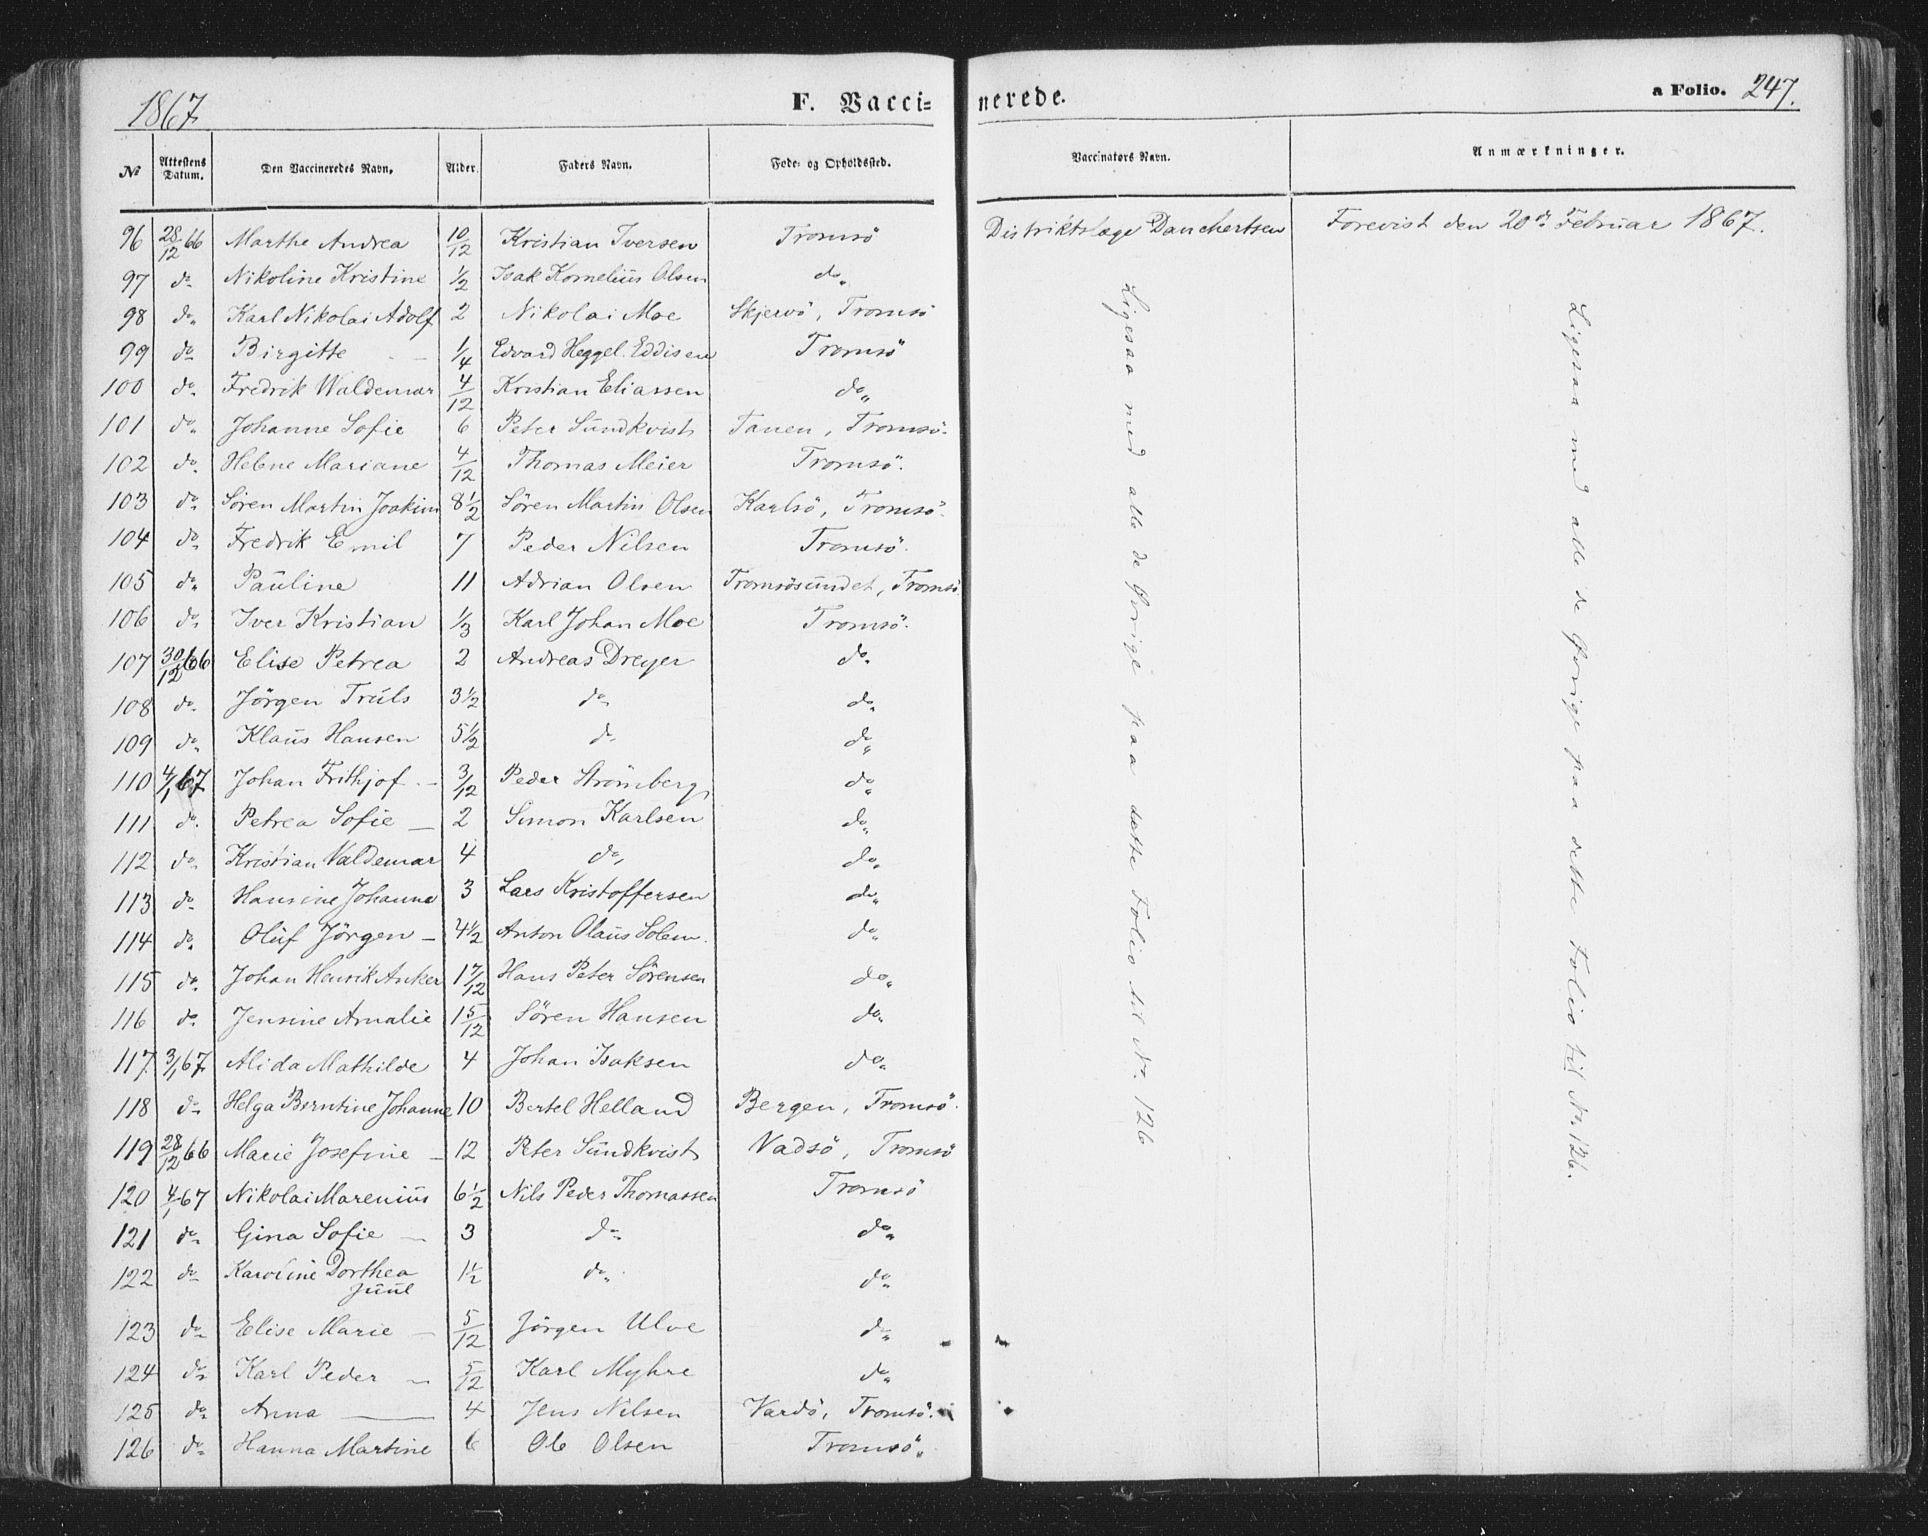 1867. F. Vacci= nerede. a Folio. 247.
№ Attestens Datum. Den Vaccineredes Navn. Alder. Faders Navn. Føde= og Opholdssted. Vaccinatørs Navn. Anmærkninger.
96 28/12 66 Marthe Andrea 10/12 Kristian Iversen Tromsö Distriktslæge Danchertsen Forevist den 20de Februar 1867.
97 do Nikoline Kristine 1/2 Isak Kornelius Olsen do
98 do Karl Nikolai Adolf 2 Nikolai Moe Skjervö, Tromsö
99 do Birgitte 1/4 Edvard Heggel. Eddisen Tromsö
100 do Fredrik Waldemar 4/12 Kristian Eliassen do
101 do Johanne Sofie 6 Peter Sundkvist Tanen, Tromsö.
102 do Helene Mariane 4/12 Thomas Meier Tromsö.
103 do Sören Martin Joakim 8 1/2 Sören Martin Olsen Karlsö, Tromsö.
104 do Fredrik Emil 7 Peder Nilsen Tromsö.
105 do Pauline 11 Adrian Olsen Tromsösundet, Tromsö.
106 do Iver Kristian 1/3 Karl Johan Moe Tromsö.
107 30/12 66 Elise Petrea 2 Andreas Dreyer do
108 do Jörgen Truls 3 1/2 do do
109 do Klaus Hansen 5 1/2 do do
110 4/1 67 Johan Frithjof 3/12 Peder Strömberg do
111 do Petrea Sofie 2 Simon Karlsen do
112 do Kristian Valdemar 4 do do
113 do Hansine Johanne 3 Lars Kristoffersen do
114 do Oluf Jörgen 4 1/2 Anton Olaus Solem. do
115 do Johan Henrik Anker 1 7/12 Hans Peter Sörensen do
116 do Jensine Amalie 1 5/12 Sören Hansen do
117 3/1 67 Alida Mathilde 4 Johan Isaksen do
118 do Helga Berntine Johanne 10 Bertel Helland Bergen, Tromsö.
119 28/12 66 Marie Josefine 12 Peter Sundkvist Vadsö, Tromsö
120 4/1 67 Nikolai Marenius 6 1/2 Nils Peder Thomassen Tromsö
121 do Gina Sofie 3 do do
122 do Karoline Dorthea Juul 1 1/2 do do
123 do Elise Marie 5/12 Jörgen Ulve do
124 do Karl Peder 5/12 Karl Myhre do
125 do Anna 4 Jens Nilsen Vardö, Tromsö.
126 do Hanna Martine 6 Ole Olsen Tromsö
Ligesaa med alle de Øvrige paa dette Folio til Nr. 126
Ligesaa med alle de Øvrige paa dette Folio til Nr 126.